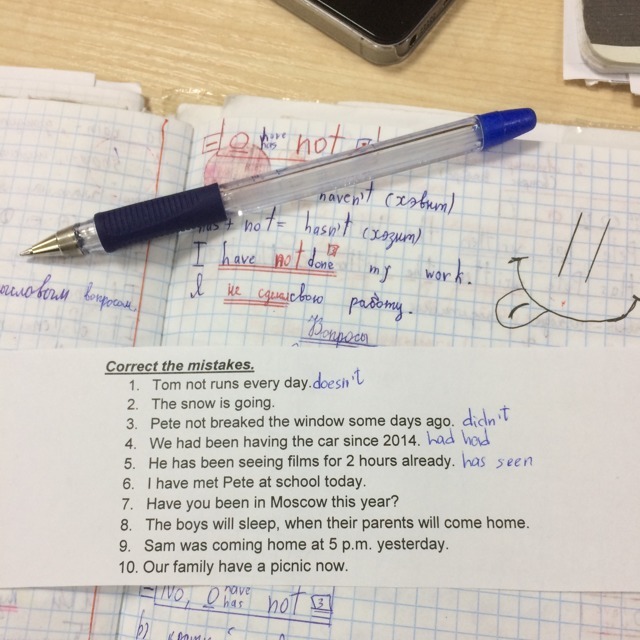 have
has not
haven't (хэвнт)
not = hasn't (хэзнт)
I have not done my work.
Я не сделал свою работу.
вопросам
Вопросы
Correct the mistakes.
1. Tom not runs every day. doesn't
2. The snow is going.
3. Pete not breaked the window some days ago. didn't
4. We had been having the car since 2014. had had
5. He has been seeing films for 2 hours already. has seen
6. I have met Pete at school today.
7. Have you been in Moscow this year?
8. The boys will sleep, when their parents will come home.
9. Sam was coming home at 5 p.m. yesterday.
10. Our family have a picnic now.
No, O have
has not 3